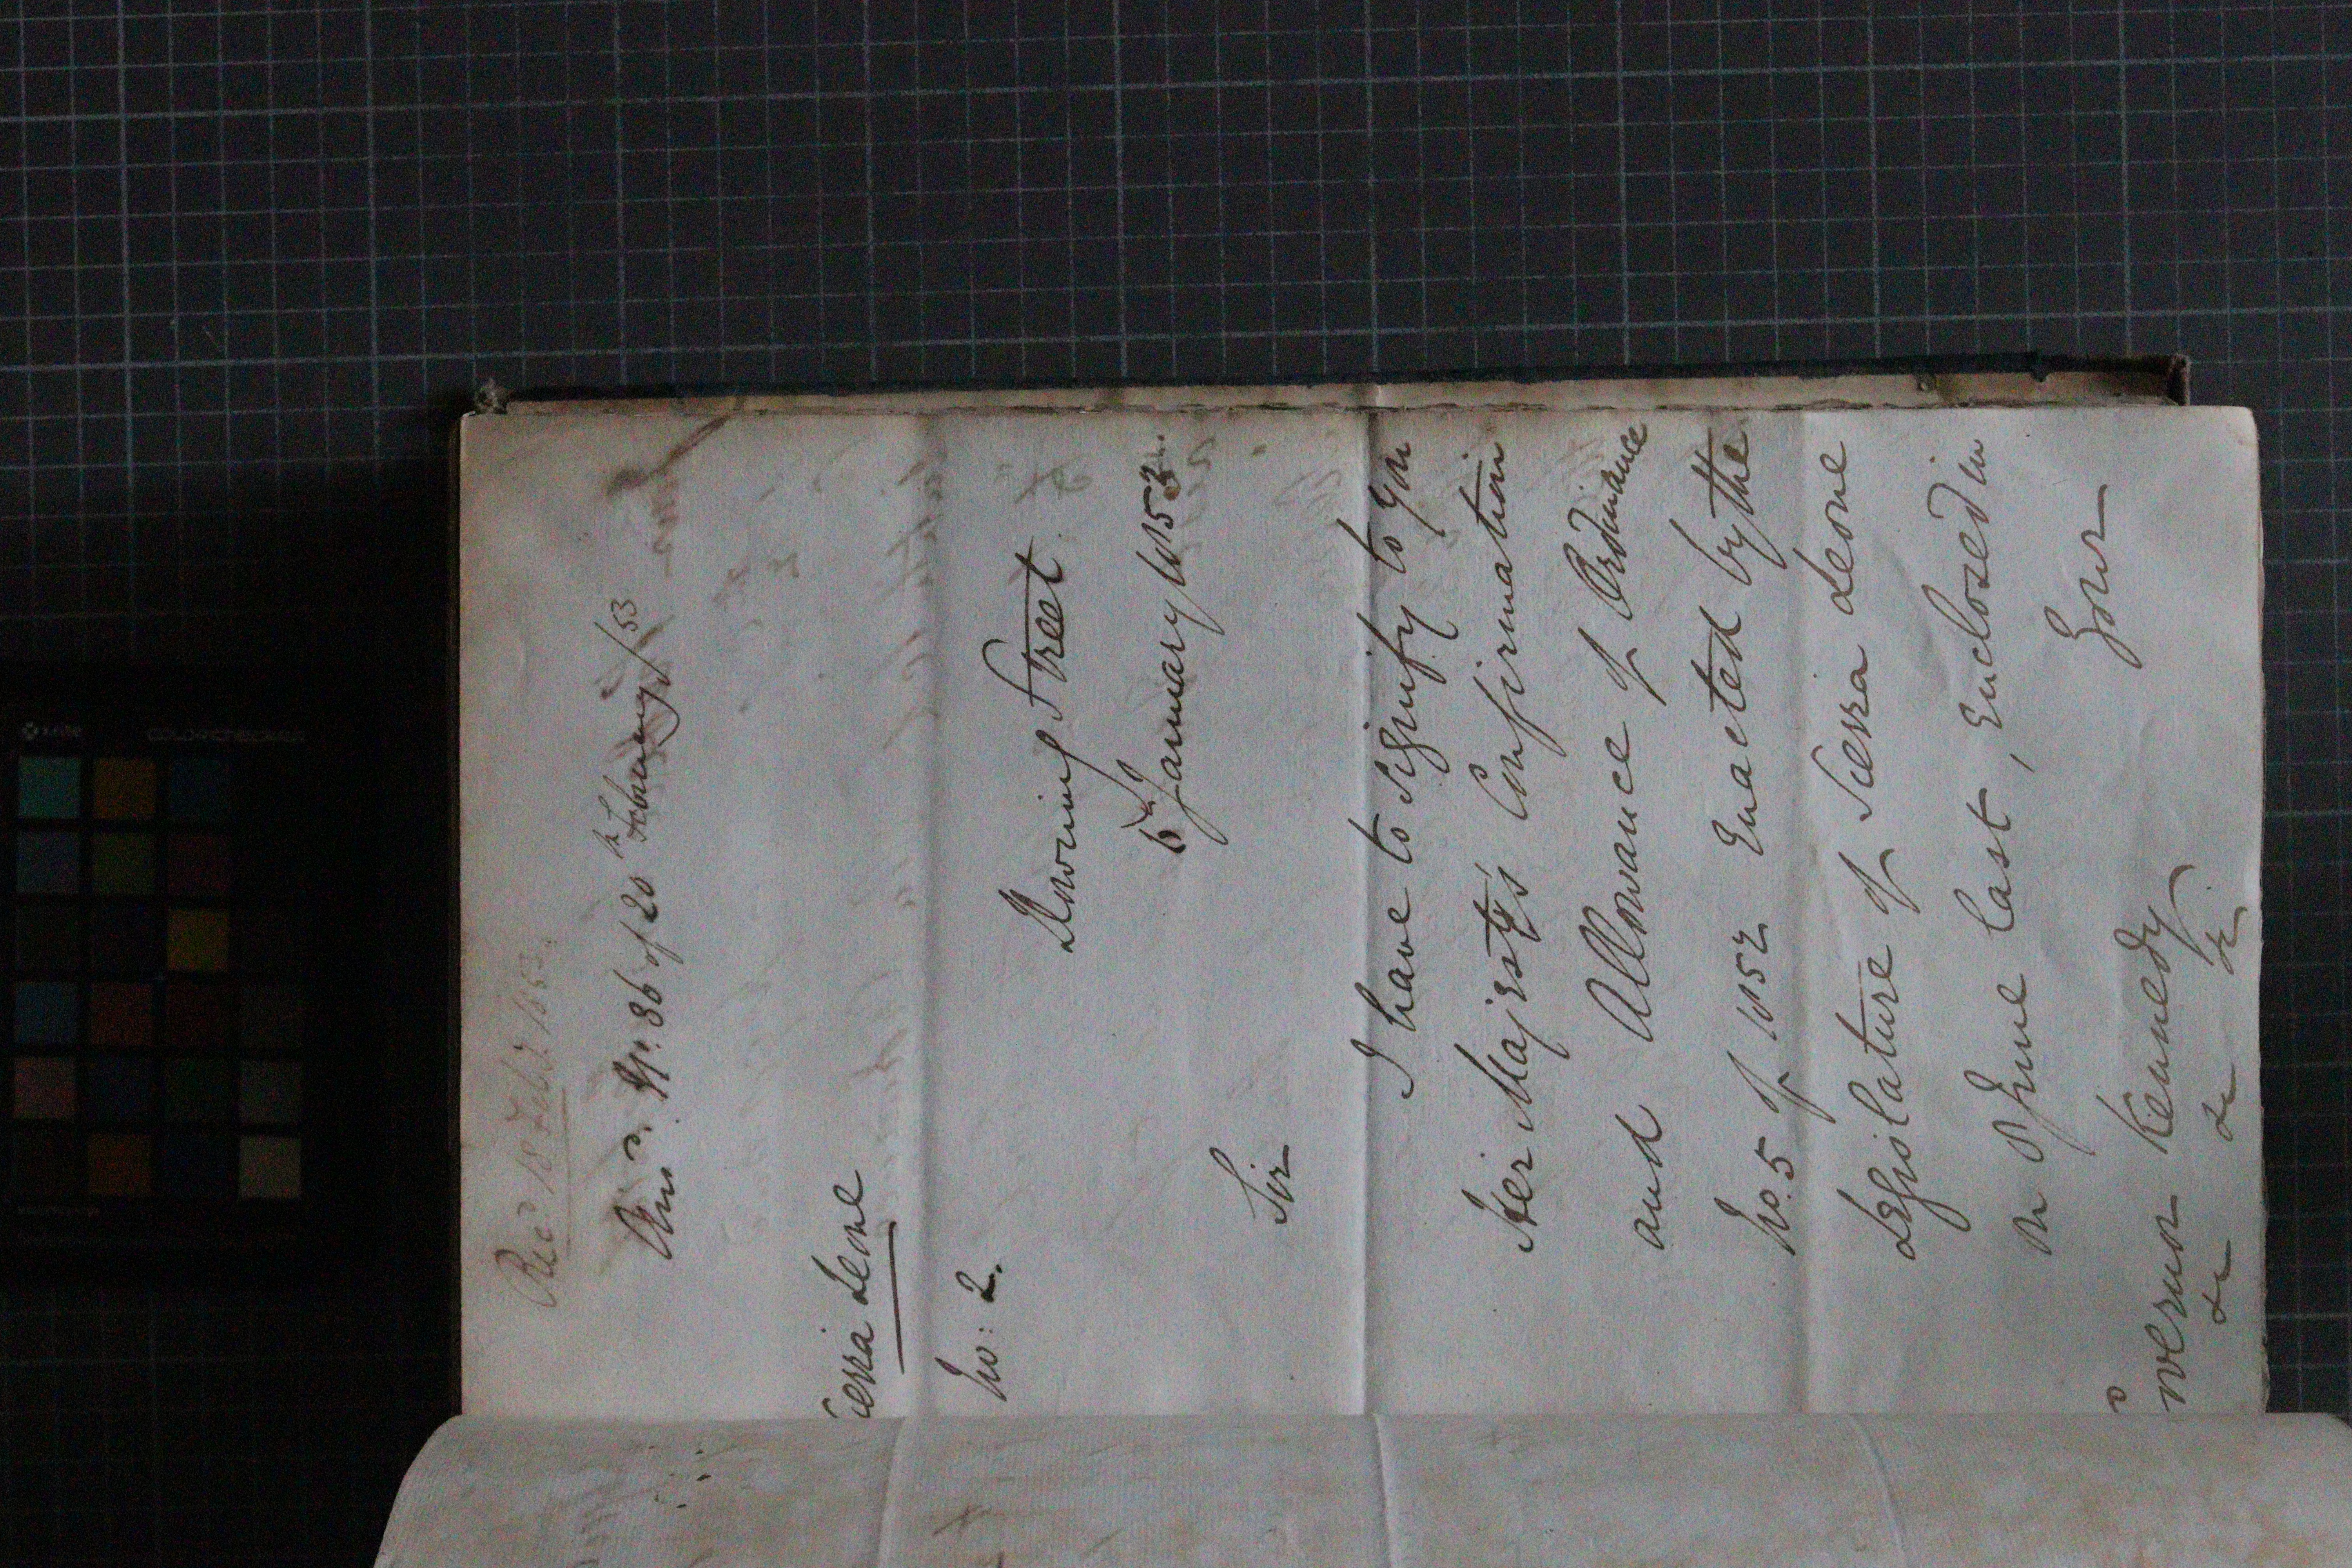 Recd. 18 Feby. 1853.
Ansd. Gl. 36 of 20th February/53
ierra Leone
No: 2.
Downing Street
6th January 1853.
Sir
I have to signify to you
Her Majesty's Confirmation
and Allowance of Ordinance
No. 5 of 1852 Enacted by the
Legislature of Sierra Leone
on 8 June last, Enclosed in
Your
overnor Kennedy
&c &c &c